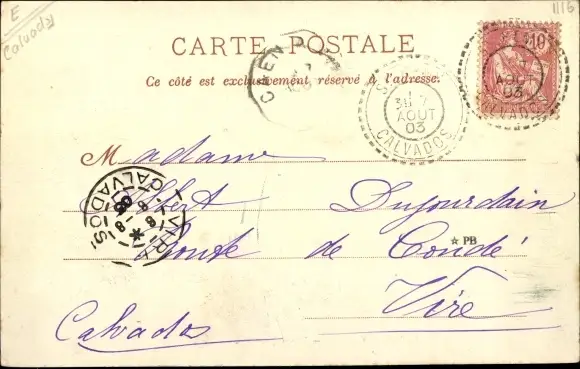 E
Calvados
1116
CARTE POSTALE
Ce côté est exclusivement réservé à l'adresse.
10
CAEN
7
AOUT
03
CALVADOS
AOUT
03
CALVADOS
Madame
Albert Dujourdain
VIRE
CALVADOS
Route de Condé
☆ PB
Vire
Calvados